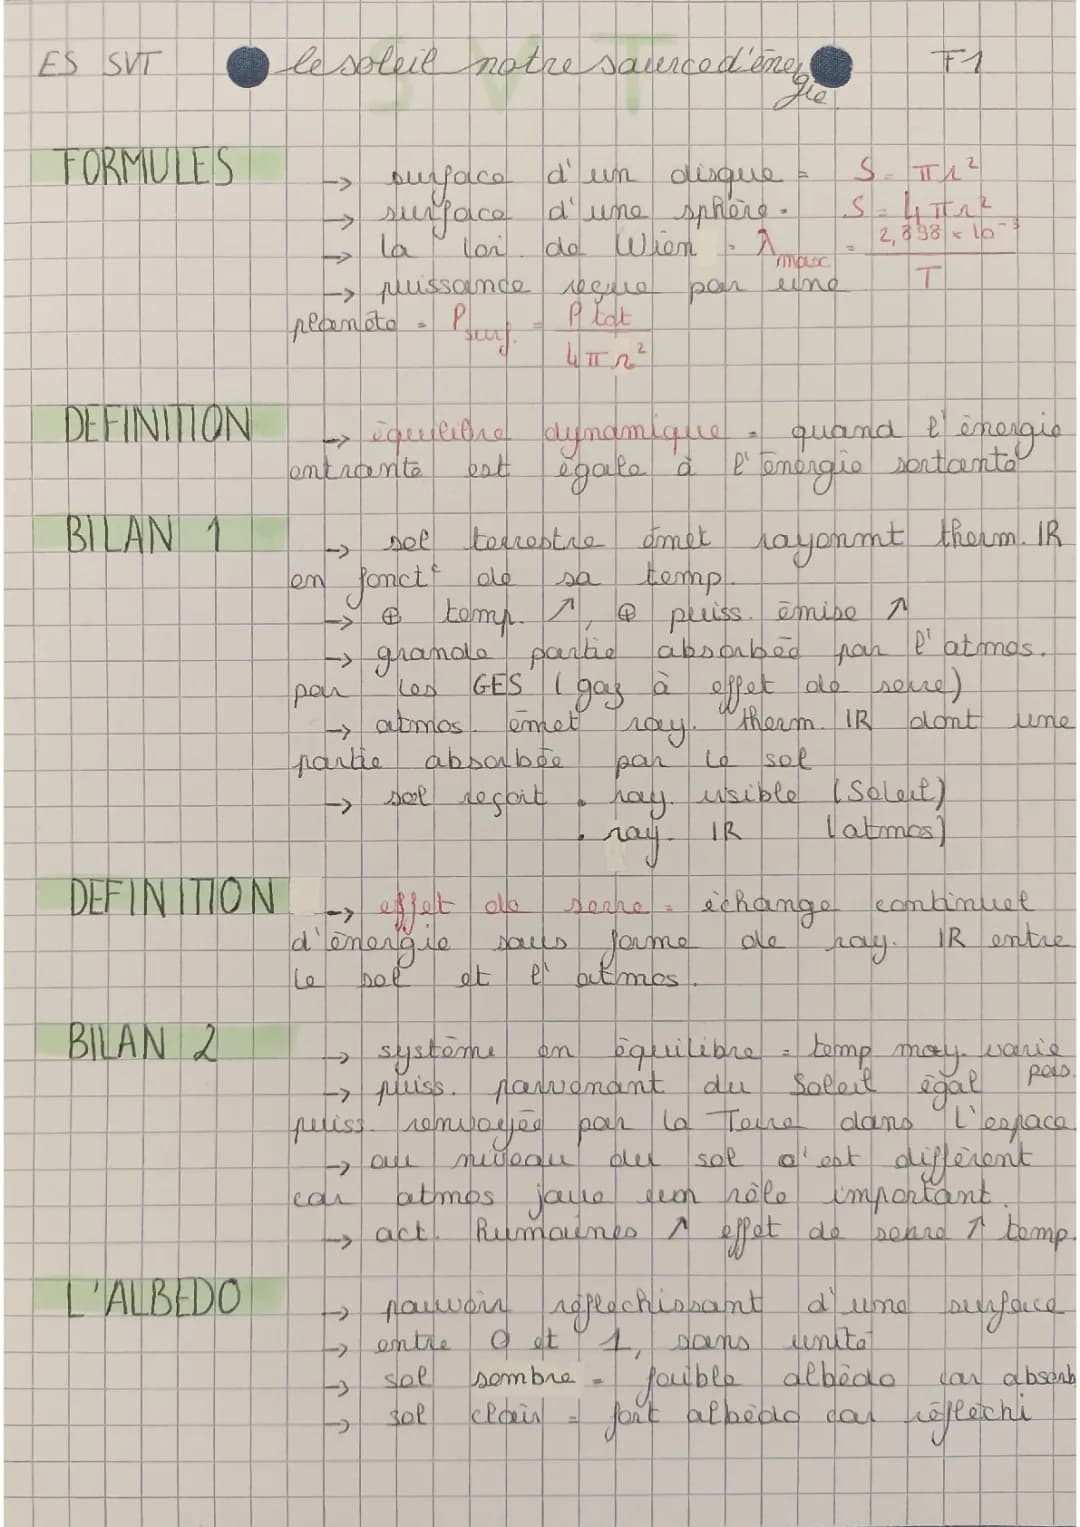 ES SVT le soleil notre source d'énergie F1
SVT
FORMULES → surface d'un disque = S = πr²
→ surface d'une sphère = S = 4πr²
→ la loi de Wien = λmax = 2,898 × 10⁻³ / T
→ puissance reçue par une
planète = Psurf. = P tot / 4πr²
DEFINITION → équilibre dynamique = quand l'énergie
entrante est égale à l'énergie sortante
BILAN 1 → sol terrestre émet rayonmt therm. IR
en fonct° de sa temp.
→ ⊕ temp. ↗, ⊕ puiss. émise ↗
→ grande partie absorbée par l'atmos.
par les GES (gaz à effet de serre)
→ atmos. émet ray. therm. IR dont une
partie absorbée par le sol
→ sol reçoit • ray. visible (Soleil)
• ray. IR (atmos)
DEFINITION → effet de serre = échange continuel
d'énergie sous forme de ray. IR entre
le sol et l'atmos.
BILAN 2 → système en équilibre = temp moy. varie pas.
→ puiss. parvenant du Soleil égal
puiss. renvoyée par la Terre dans l'espace
→ au niveau du sol c'est différent
car atmos joue un rôle important.
→ act. humaines ↗ effet de serre ↗ temp.
L'ALBEDO → pouvoir réflechissant d'une surface
→ entre 0 et 1, sans unité
→ sol sombre = faible albédo car absorb
→ sol clair = fort albédo car réfléchi